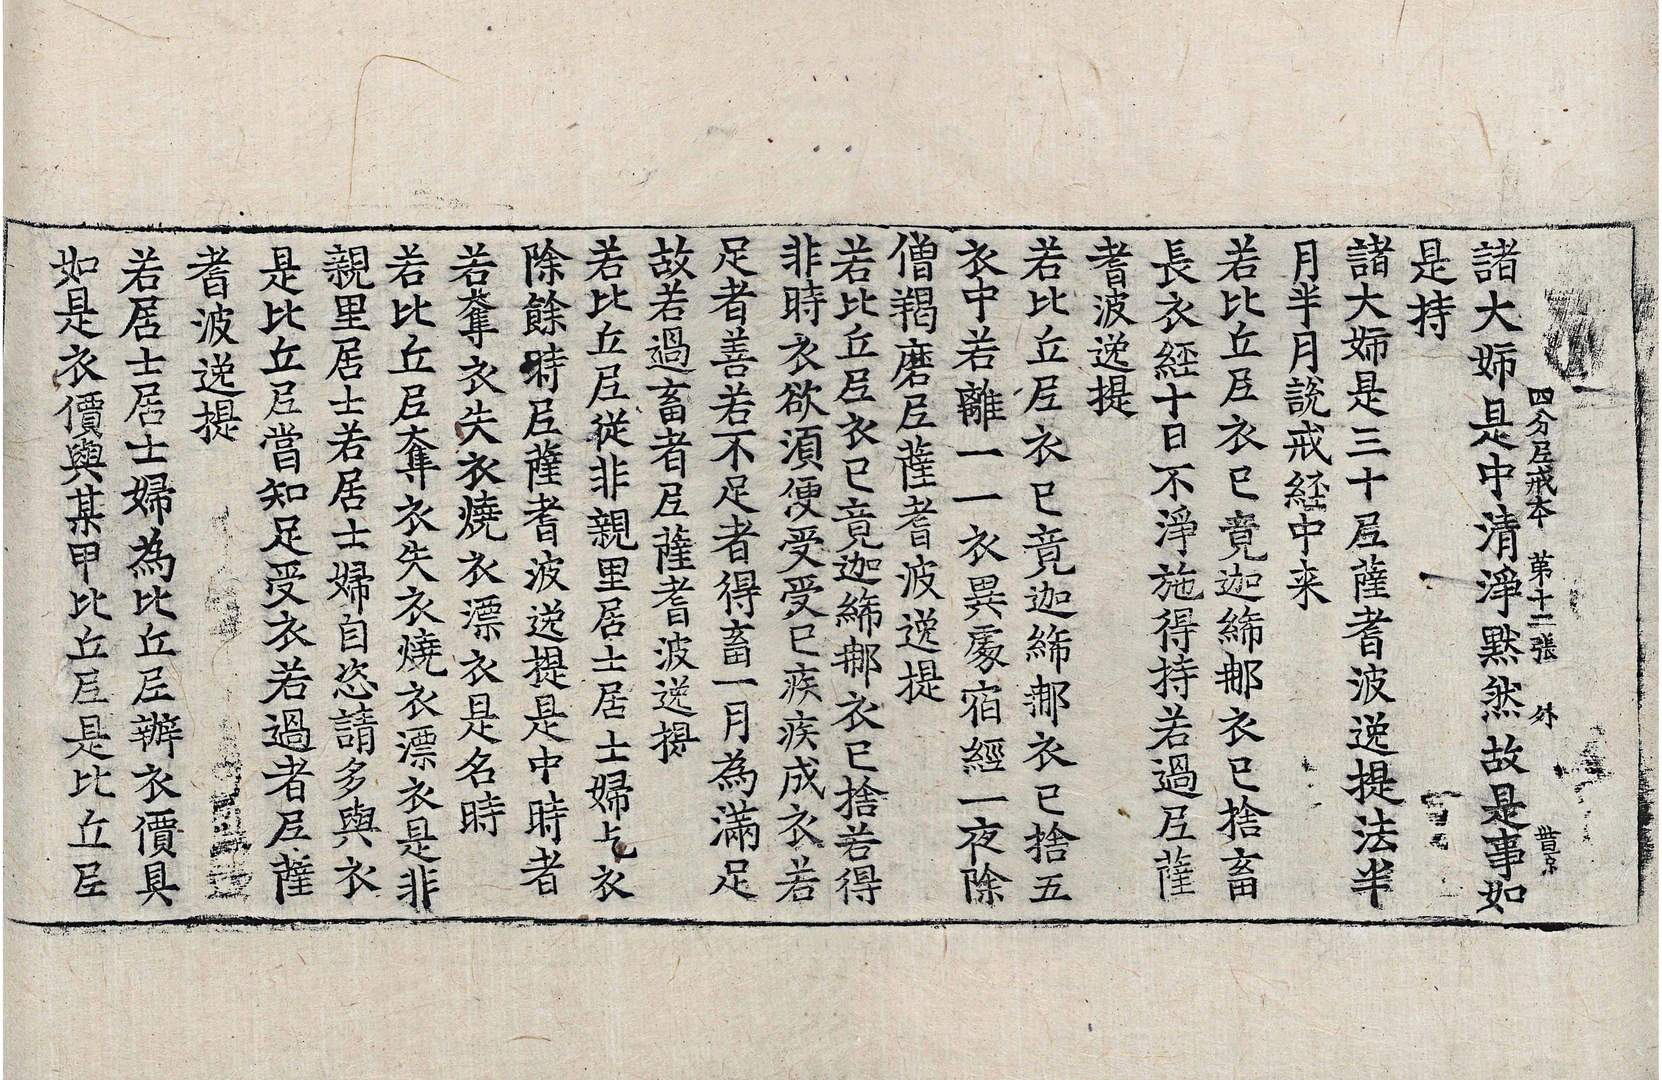 四分尼戒本 第十二張 外
諸大姉是中清淨默然故是事如
是持
諸大姉是三十尼薩耆波逸提法半
月半月說戒経中来
若比丘尼衣已竟迦絺那衣已捨畜
長衣經十日不淨施得持若過尼薩
耆波逸提
若比丘尼衣已竟迦絺那衣已捨五
衣中若離一一衣異處宿經一夜除
僧羯磨尼薩耆波逸提
若比丘尼衣已竟迦絺那衣已捨若得
非時衣欲湏便受受已疾疾成衣若
足者善若不足者得畜一月為滿足
故若過畜者尼薩耆波逸提
若比丘尼從非親里居士居士婦乞衣
除餘時尼薩耆波逸提是中時者
若奪衣失衣燒衣漂衣是名時
若比丘尼奪衣失衣燒衣漂衣是非
親里居士若居士婦自恣請多與衣
是比丘尼當知足受衣若過者尼薩
耆波逸提
若居士居士婦為比丘尼辦衣價具
如是衣價與某甲比丘尼是比丘尼